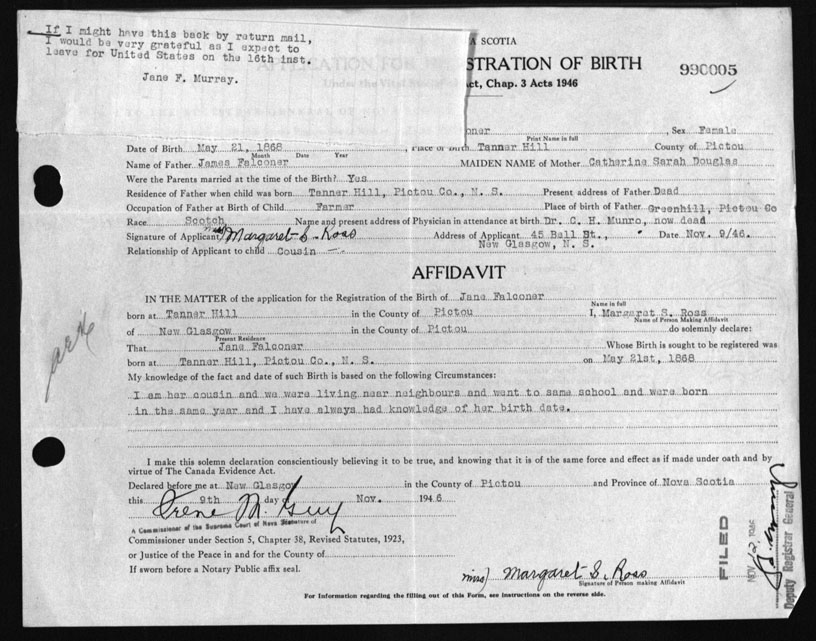 If I might have this back by return mail,
I would be very grateful as I expect to
leave for United States on the 16th inst.
Jane F. Murray.
A SCOTIA
STRATION OF BIRTH
990005
Act, Chap. 3 Acts 1946
oner, Sex Female
Print Name in full
Date of Birth May 21, 1868, Place of Birth Tanner Hill County of Pictou
Month Date Year
Name of Father James Falconer MAIDEN NAME of Mother Catherine Sarah Douglas
Were the Parents married at the time of the Birth? Yes
Residence of Father when child was born Tanner Hill, Pictou Co., N. S. Present address of Father Dead
Occupation of Father at Birth of Child Farmer Place of birth of Father Greenhill, Pictou Co
Race Scotch Name and present address of Physician in attendance at birth Dr. C. H. Munro, now dead
Signature of Applicant (Miss) Margaret S. Ross Address of Applicant 45 Bell St., Date Nov. 9/46.
New Glasgow, N. S.
Relationship of Applicant to child Cousin
AFFIDAVIT
IN THE MATTER of the application for the Registration of the Birth of Jane Falconer
Name in full
born at Tanner Hill in the County of Pictou I, Margaret S. Ross
Name of Person Making Affidavit
of New Glasgow in the County of Pictou do solemnly declare:
Present Residence
That Jane Falconer Whose Birth is sought to be registered was
born at Tanner Hill, Pictou Co., N. S. on May 21st, 1868
My knowledge of the fact and date of such Birth is based on the following Circumstances:
I am her cousin and we were living near neighbours and went to same school and were born
in the same year and I have always had knowledge of her birth date.
I make this solemn declaration conscientiously believing it to be true, and knowing that it is of the same force and effect as if made under oath and by
virtue of The Canada Evidence Act.
Declared before me at New Glasgow in the County of Pictou and Province of Nova Scotia
this 9th day of Nov. 1946
Irene M. Guy
A Commissioner of the Supreme Court of Nova Scotia Signature of
Commissioner under Section 5, Chapter 38, Revised Statutes, 1923,
or Justice of the Peace in and for the County of
If sworn before a Notary Public affix seal.
(Miss) Margaret S. Ross
Signature of Person making Affidavit
For Information regarding the filling out of this Form, see instructions on the reverse side.
FILED
NOV
Deputy Registrar General